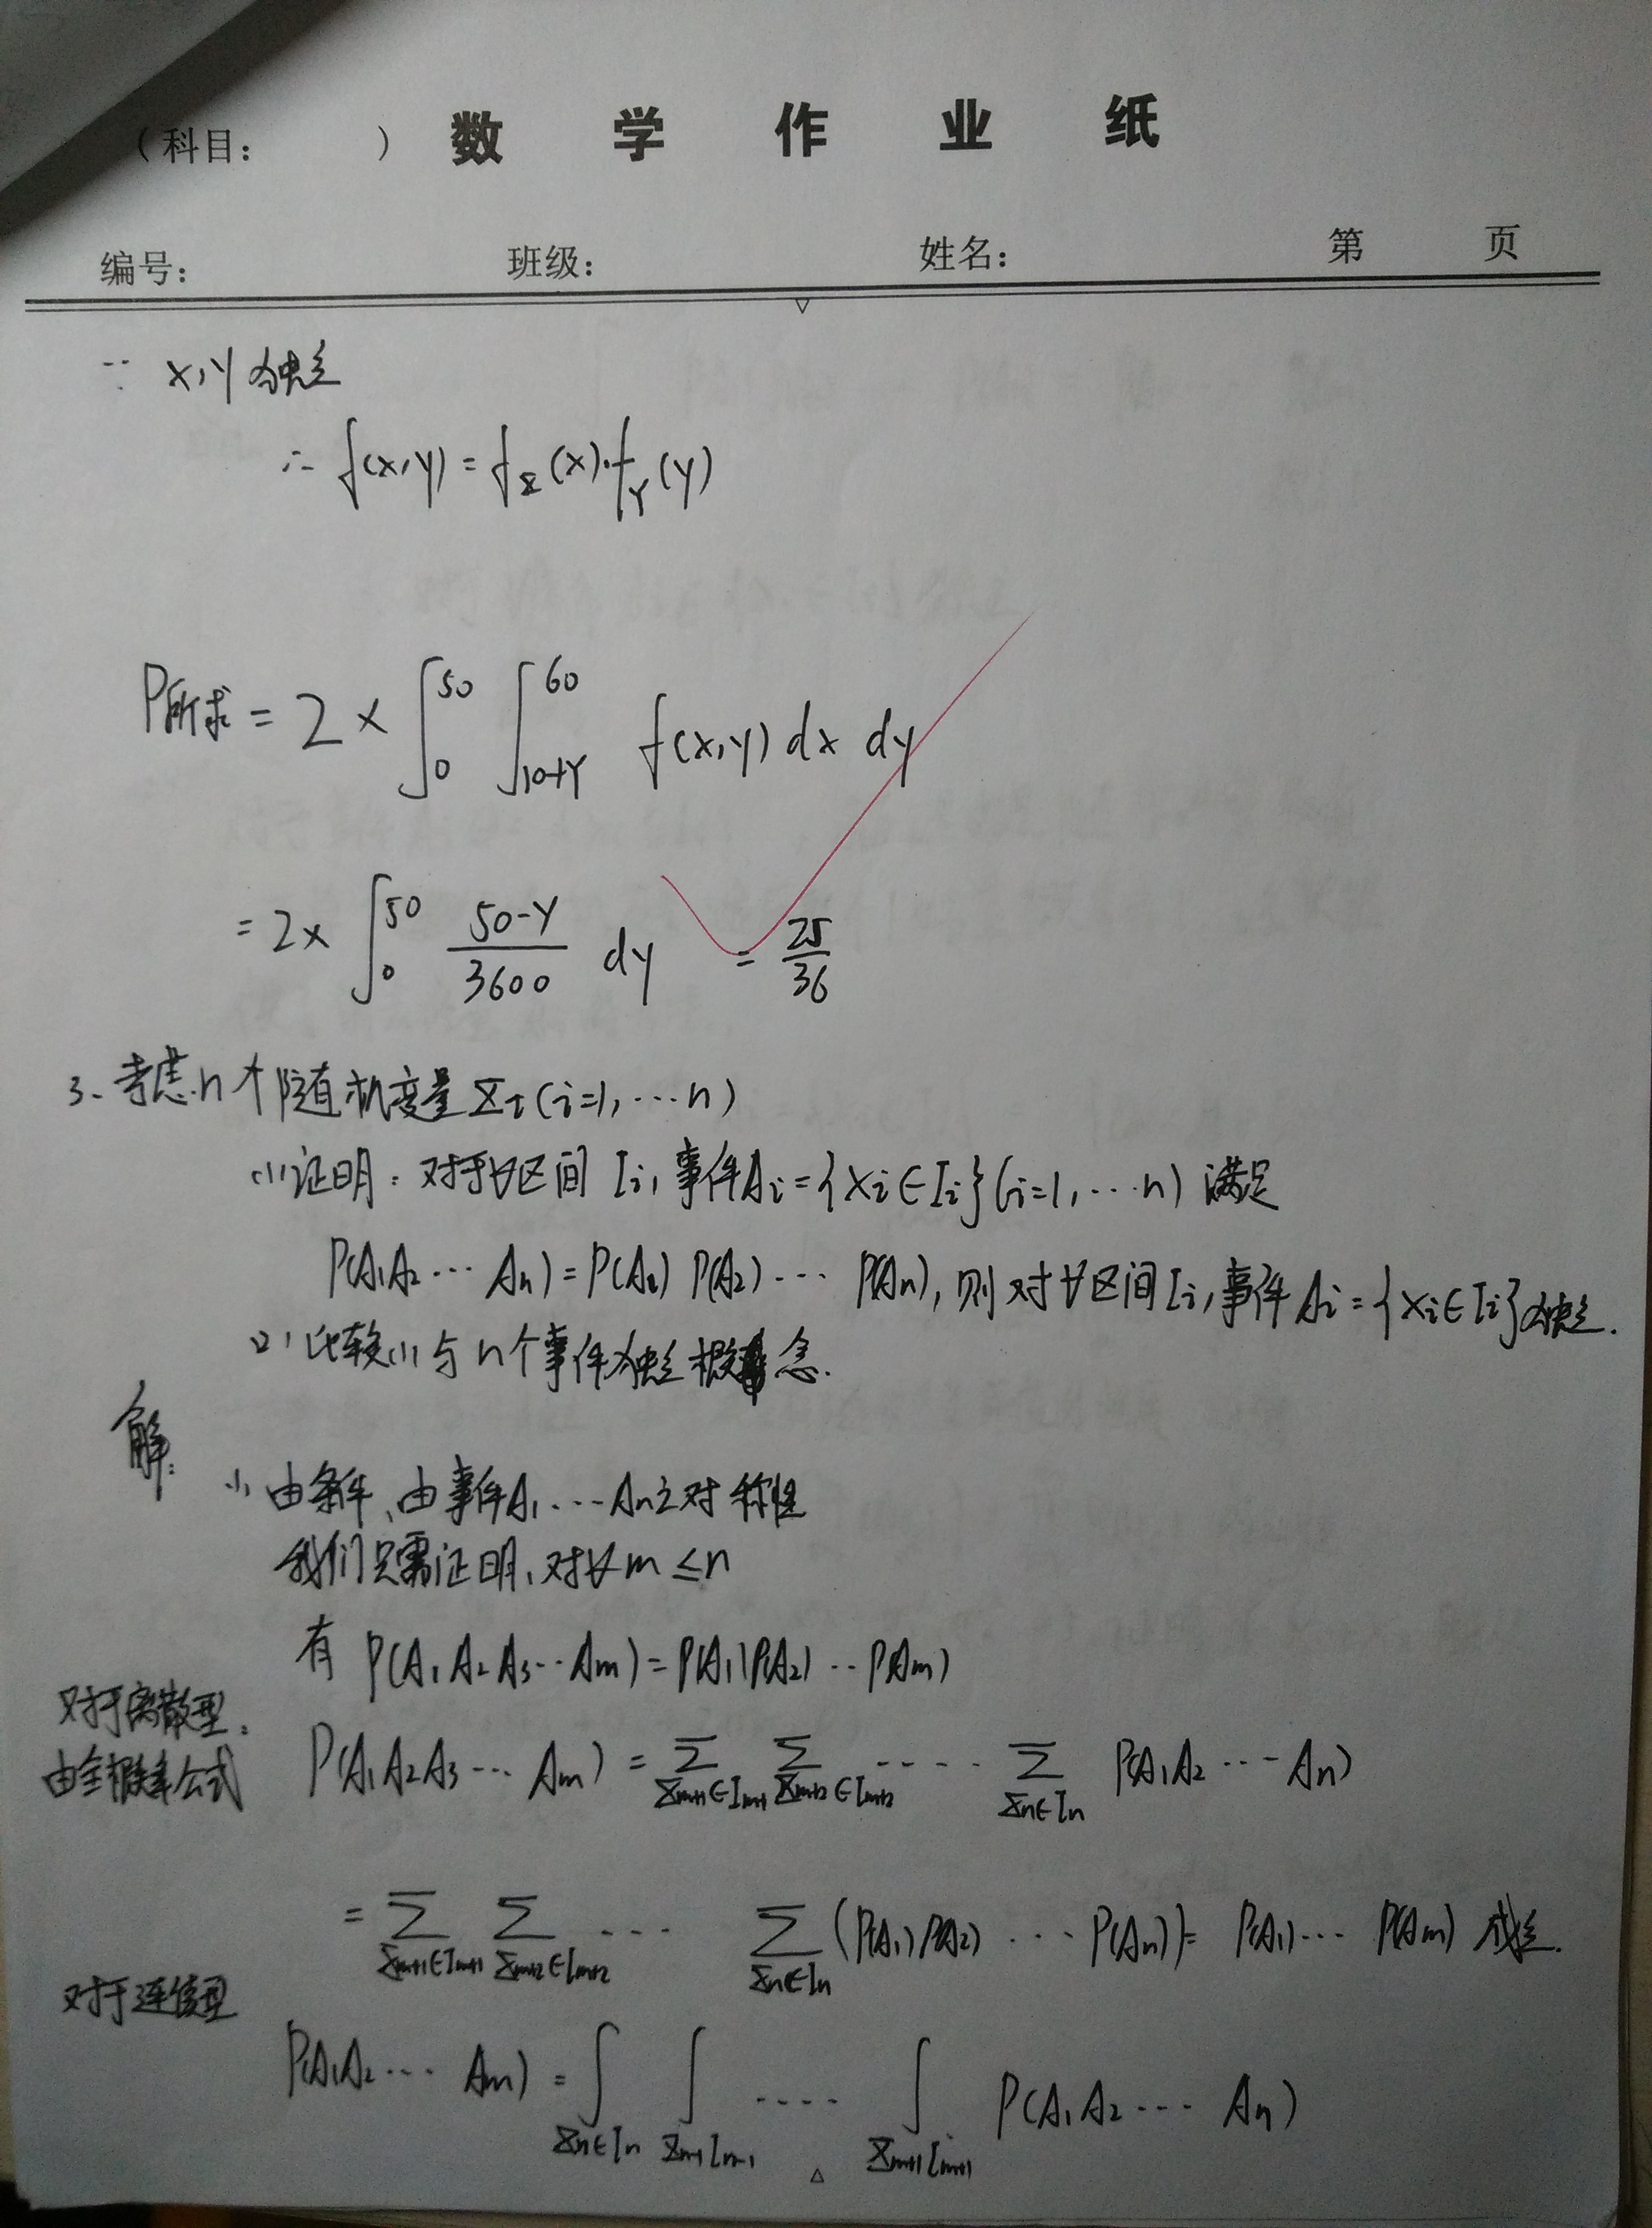 (科目: ) 数学作业纸
编号: 班级: 姓名: 第 页
∵ X,Y独立
∴ f(x,y) = f_X(x)·f_Y(y)
P所求 = 2 × ∫_0^50 ∫_{10+y}^60 f(x,y) dx dy
= 2× ∫_0^50 (50-y)/3600 dy = 25/36
3、考虑n个随机变量 X_i (i=1,…n)
(1)证明:对于∀区间 I_i,事件A_i={X_i∈I_i}(i=1,…n) 满足
P(A_1A_2…A_n)=P(A_1)P(A_2)…P(A_n),则对∀区间I_i,事件A_i={X_i∈I_i}独立.
(2)比较(1)与n个事件独立概念.
解:
(1) 由条件、由事件A_1…A_n之对称性
我们只需证明,对∀m≤n
有 P(A_1A_2A_3…A_m)=P(A_1)P(A_2)…P(A_m)
对于离散型:
由全概率公式 P(A_1A_2A_3…A_m) = ∑_{X_{m+1}∈I_{m+1}} ∑_{X_{m+2}∈I_{m+2}} …… ∑_{X_n∈I_n} P(A_1A_2…A_n)
= ∑_{X_{m+1}∈I_{m+1}} ∑_{X_{m+2}∈I_{m+2}} … ∑_{X_n∈I_n} (P(A_1)P(A_2)…P(A_n)) = P(A_1)…P(A_m) 成立.
对于连续型
P(A_1A_2…A_m) = ∫_{X_n∈I_n} ∫_{X_{n-1} I_{n-1}} …… ∫_{X_{m+1} I_{m+1}} P(A_1A_2…A_n)